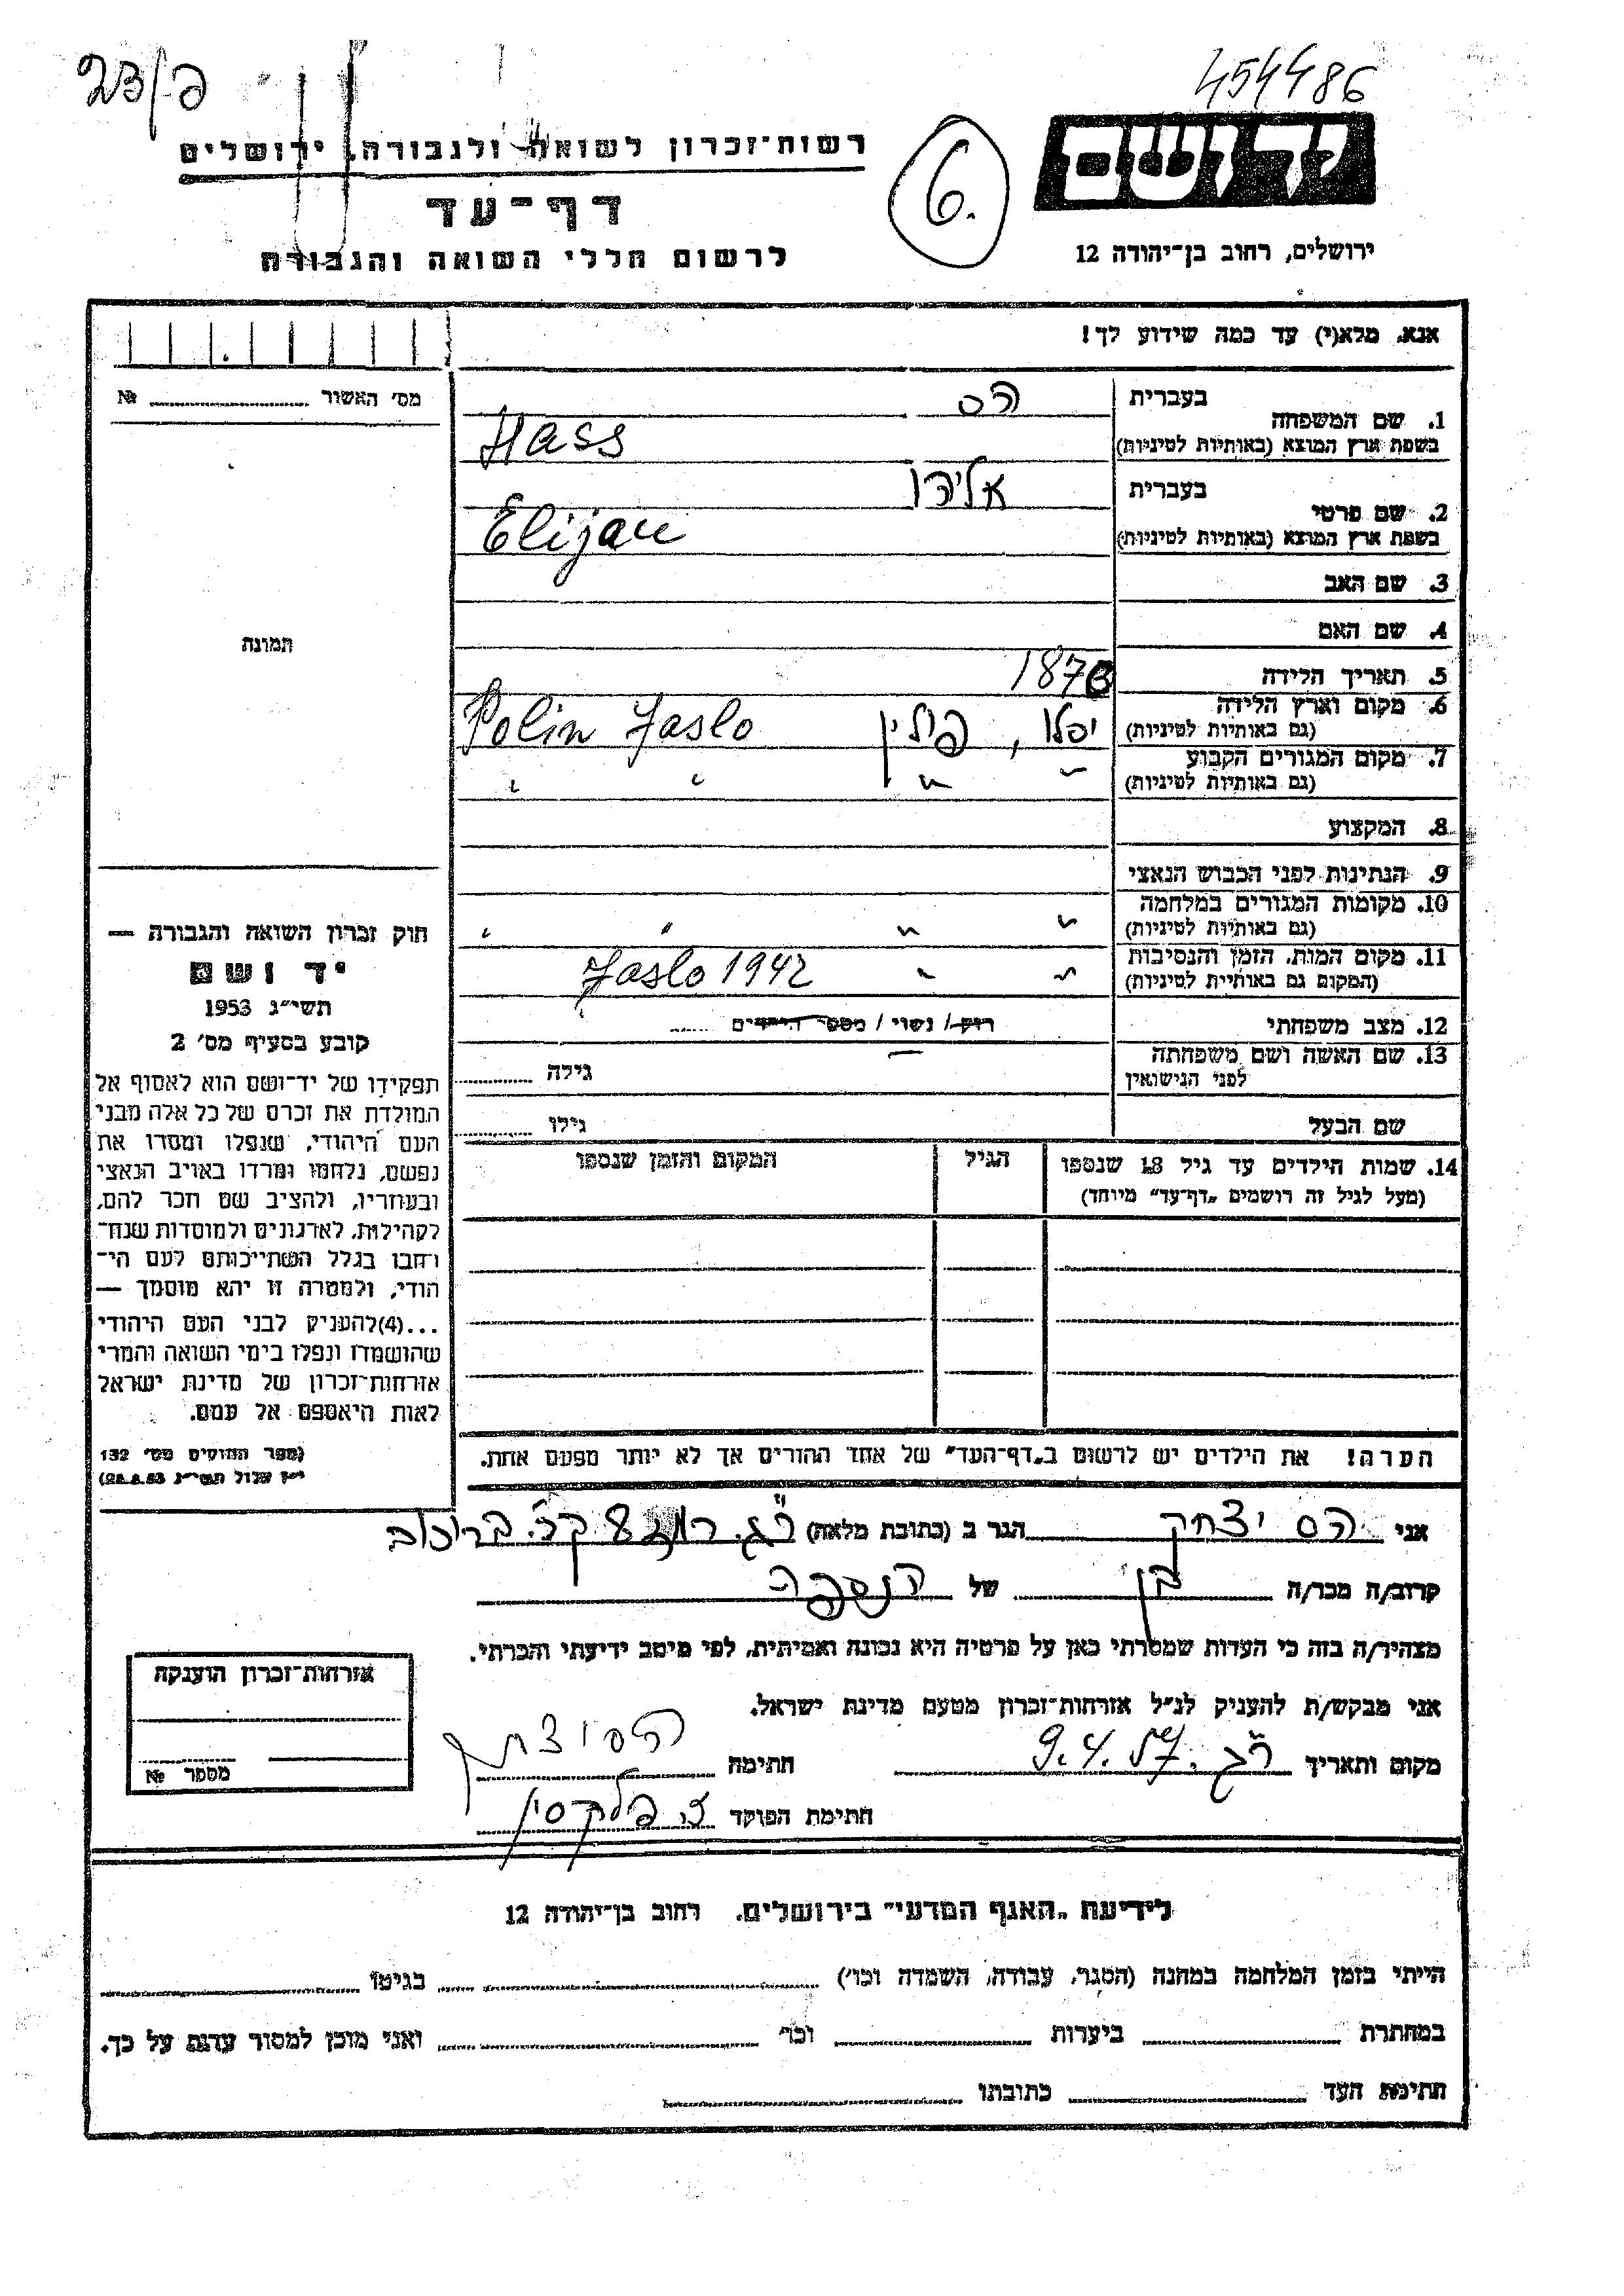 454486
23/פ
יד ושם
רשות־זכרון לשואה ולגבורה, ירושלים
6.
דף־עד
ירושלים, רחוב בן־יהודה 12
לרשום חללי השואה והגבורה
אנא, מלא(י) עד כמה שידוע לך!
מס׳ האשור № 
1. שם המשפחה
בעברית הס
בשפת ארץ המוצא (באותיות לטיניות) Hass
2. שם פרטי
בעברית אליהו
בשפת ארץ המוצא (באותיות לטיניות) Elijau
3. שם האב
4. שם האם
תמונה
5. תאריך הלידה 1876
6. מקום וארץ הלידה יסלו, פולין Polin Jaslo
(גם באותיות לטיניות)
7. מקום המגורים הקבוע
(גם באותיות לטיניות) " " " "
8. המקצוע
9. הנתינות לפני הכבוש הנאצי
10. מקומות המגורים במלחמה
(גם באותיות לטיניות) " " " "
11. מקום המות, הזמן והנסיבות
(המקום גם באותיית לטיניות) " " Jaslo 1942
12. מצב משפחתי רווק/ נשוי/ מספר הילדים
13. שם האשה ושם משפחתה
לפני הנישואין גילה
שם הבעל גילו
14. שמות הילדים עד גיל 18 שנספו הגיל המקום והזמן שנספו
(מעל לגיל זה רושמים „דף־עד״ מיוחד)
חוק זכרון השואה והגבורה —
יד ושם
תשי״ג 1953
קובע בסעיף מס׳ 2
תפקידו של יד־ושם הוא לאסוף אל
המולדת את זכרם של כל אלה מבני
העם היהודי, שנפלו ומסרו את
נפשם, נלחמו ומרדו באויב הנאצי
ובעוזריו, ולהציב שם וזכר להם,
לקהילות, לארגונים ולמוסדות שנח־
רחבו בגלל השתייכותם לעם הי־
הודי, ולמטרה זו יהא מוסמך —
...(4)להעניק לבני העם היהודי
שהושמדו ונפלו בימי השואה והמרי
אזרחות־זכרון של מדינת ישראל
לאות היאספם אל עמם.
(ספר החוקים מס׳ 132
י״ז אלול תשי״ג 28.8.53)
הערה! את הילדים יש לרשום ב„דף־העד״ של אחד ההורים אך לא יותר מפעם אחת.
אני הס יצחק הגר ב (כתובת מלאה) ר״ג.
קרוב/ה מכר/ה בן של הנספה
מצהיר/ה בזה כי העדות שמסרתי כאן על פרטיה היא נכונה ואמיתית, לפי מיטב ידיעתי והכרתי.
אני מבקש/ת להעניק לנ״ל אזרחות־זכרון מטעם מדינת ישראל.
מקום ותאריך ר״ג. 9.4.57 חתימה
חתימת הפוקד
אזרחות־זכרון הוענקה
מספר №
לידיעת „האגף המדעי״ בירושלים, רחוב בן־יהודה 12
הייתי בזמן המלחמה במחנה (הסגר, עבודה, השמדה וכו׳) בגיטו
במחתרת ביערות וכו׳ ואני מוכן למסור עדות על כך.
חתימת העד כתובתו